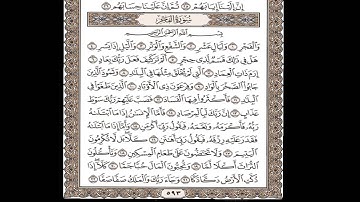 إِنَّ إِلَيْنَآ إِيَابَهُمْ ۝٢٥ ثُمَّ إِنَّ عَلَيْنَا حِسَابَهُم ۝٢٦
سُورَةُ الفَجْرِ
بِسْمِ ٱللَّهِ ٱلرَّحْمَٰنِ ٱلرَّحِيمِ
وَٱلْفَجْرِ ۝١ وَلَيَالٍ عَشْرٍ ۝٢ وَٱلشَّفْعِ وَٱلْوَتْرِ ۝٣ وَٱلَّيْلِ إِذَا يَسْرِ ۝٤
هَلْ فِى ذَٰلِكَ قَسَمٌ لِّذِى حِجْرٍ ۝٥ أَلَمْ تَرَ كَيْفَ فَعَلَ رَبُّكَ بِعَادٍ ۝٦
إِرَمَ ذَاتِ ٱلْعِمَادِ ۝٧ ٱلَّتِى لَمْ يُخْلَقْ مِثْلُهَا فِى ٱلْبِلَٰدِ ۝٨ وَثَمُودَ ٱلَّذِينَ
جَابُوا۟ ٱلصَّخْرَ بِٱلْوَادِ ۝٩ وَفِرْعَوْنَ ذِى ٱلْأَوْتَادِ ۝١٠ ٱلَّذِينَ طَغَوْا۟ فِى
ٱلْبِلَٰدِ ۝١١ فَأَكْثَرُوا۟ فِيهَا ٱلْفَسَادَ ۝١٢ فَصَبَّ عَلَيْهِمْ رَبُّكَ سَوْطَ
عَذَابٍ ۝١٣ إِنَّ رَبَّكَ لَبِٱلْمِرْصَادِ ۝١٤ فَأَمَّا ٱلْإِنسَٰنُ إِذَا مَا ٱبْتَلَىٰهُ
رَبُّهُۥ فَأَكْرَمَهُۥ وَنَعَّمَهُۥ فَيَقُولُ رَبِّىٓ أَكْرَمَنِ ۝١٥ وَأَمَّآ إِذَا مَا ٱبْتَلَىٰهُ
فَقَدَرَ عَلَيْهِ رِزْقَهُۥ فَيَقُولُ رَبِّىٓ أَهَٰنَنِ ۝١٦ كَلَّا بَل لَّا تُكْرِمُونَ
ٱلْيَتِيمَ ۝١٧ وَلَا تَحَٰٓضُّونَ عَلَىٰ طَعَامِ ٱلْمِسْكِينِ ۝١٨ وَتَأْكُلُونَ
ٱلتُّرَاثَ أَكْلًا لَّمًّا ۝١٩ وَتُحِبُّونَ ٱلْمَالَ حُبًّا جَمًّا ۝٢٠ كَلَّآ إِذَا
دُكَّتِ ٱلْأَرْضُ دَكًّا دَكًّا ۝٢١ وَجَآءَ رَبُّكَ وَٱلْمَلَكُ صَفًّا صَفًّا ۝٢٢
٥٩٣